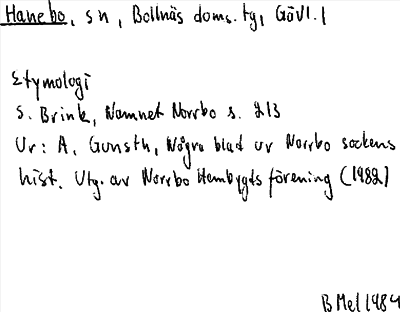 Hanebo, sn, Bollnäs doms. tg, Gävl. l
Etymologi
S. Brink, Namnet Norrbo s. 213
Ur: A. Gunsth, Några blad ur Norrbo sockens
hist. Utg. av Norrbo Hembygds förening (1982)
B Mel 1984